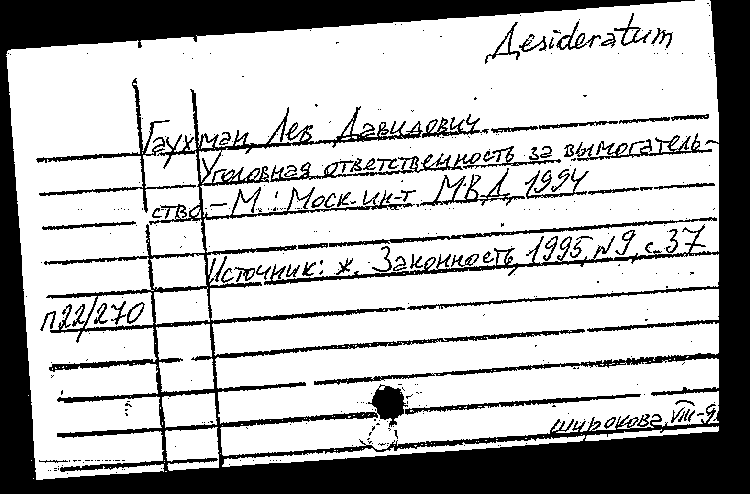 Desideratum
Гаухман, Лев Давидович
Уголовная ответственность за вымогатель-
ство. - М.: Моск. ин-т МВД, 1994
Источник: ж. Законность, 1995, №9, с. 37
п22/270
широкова, VIII-